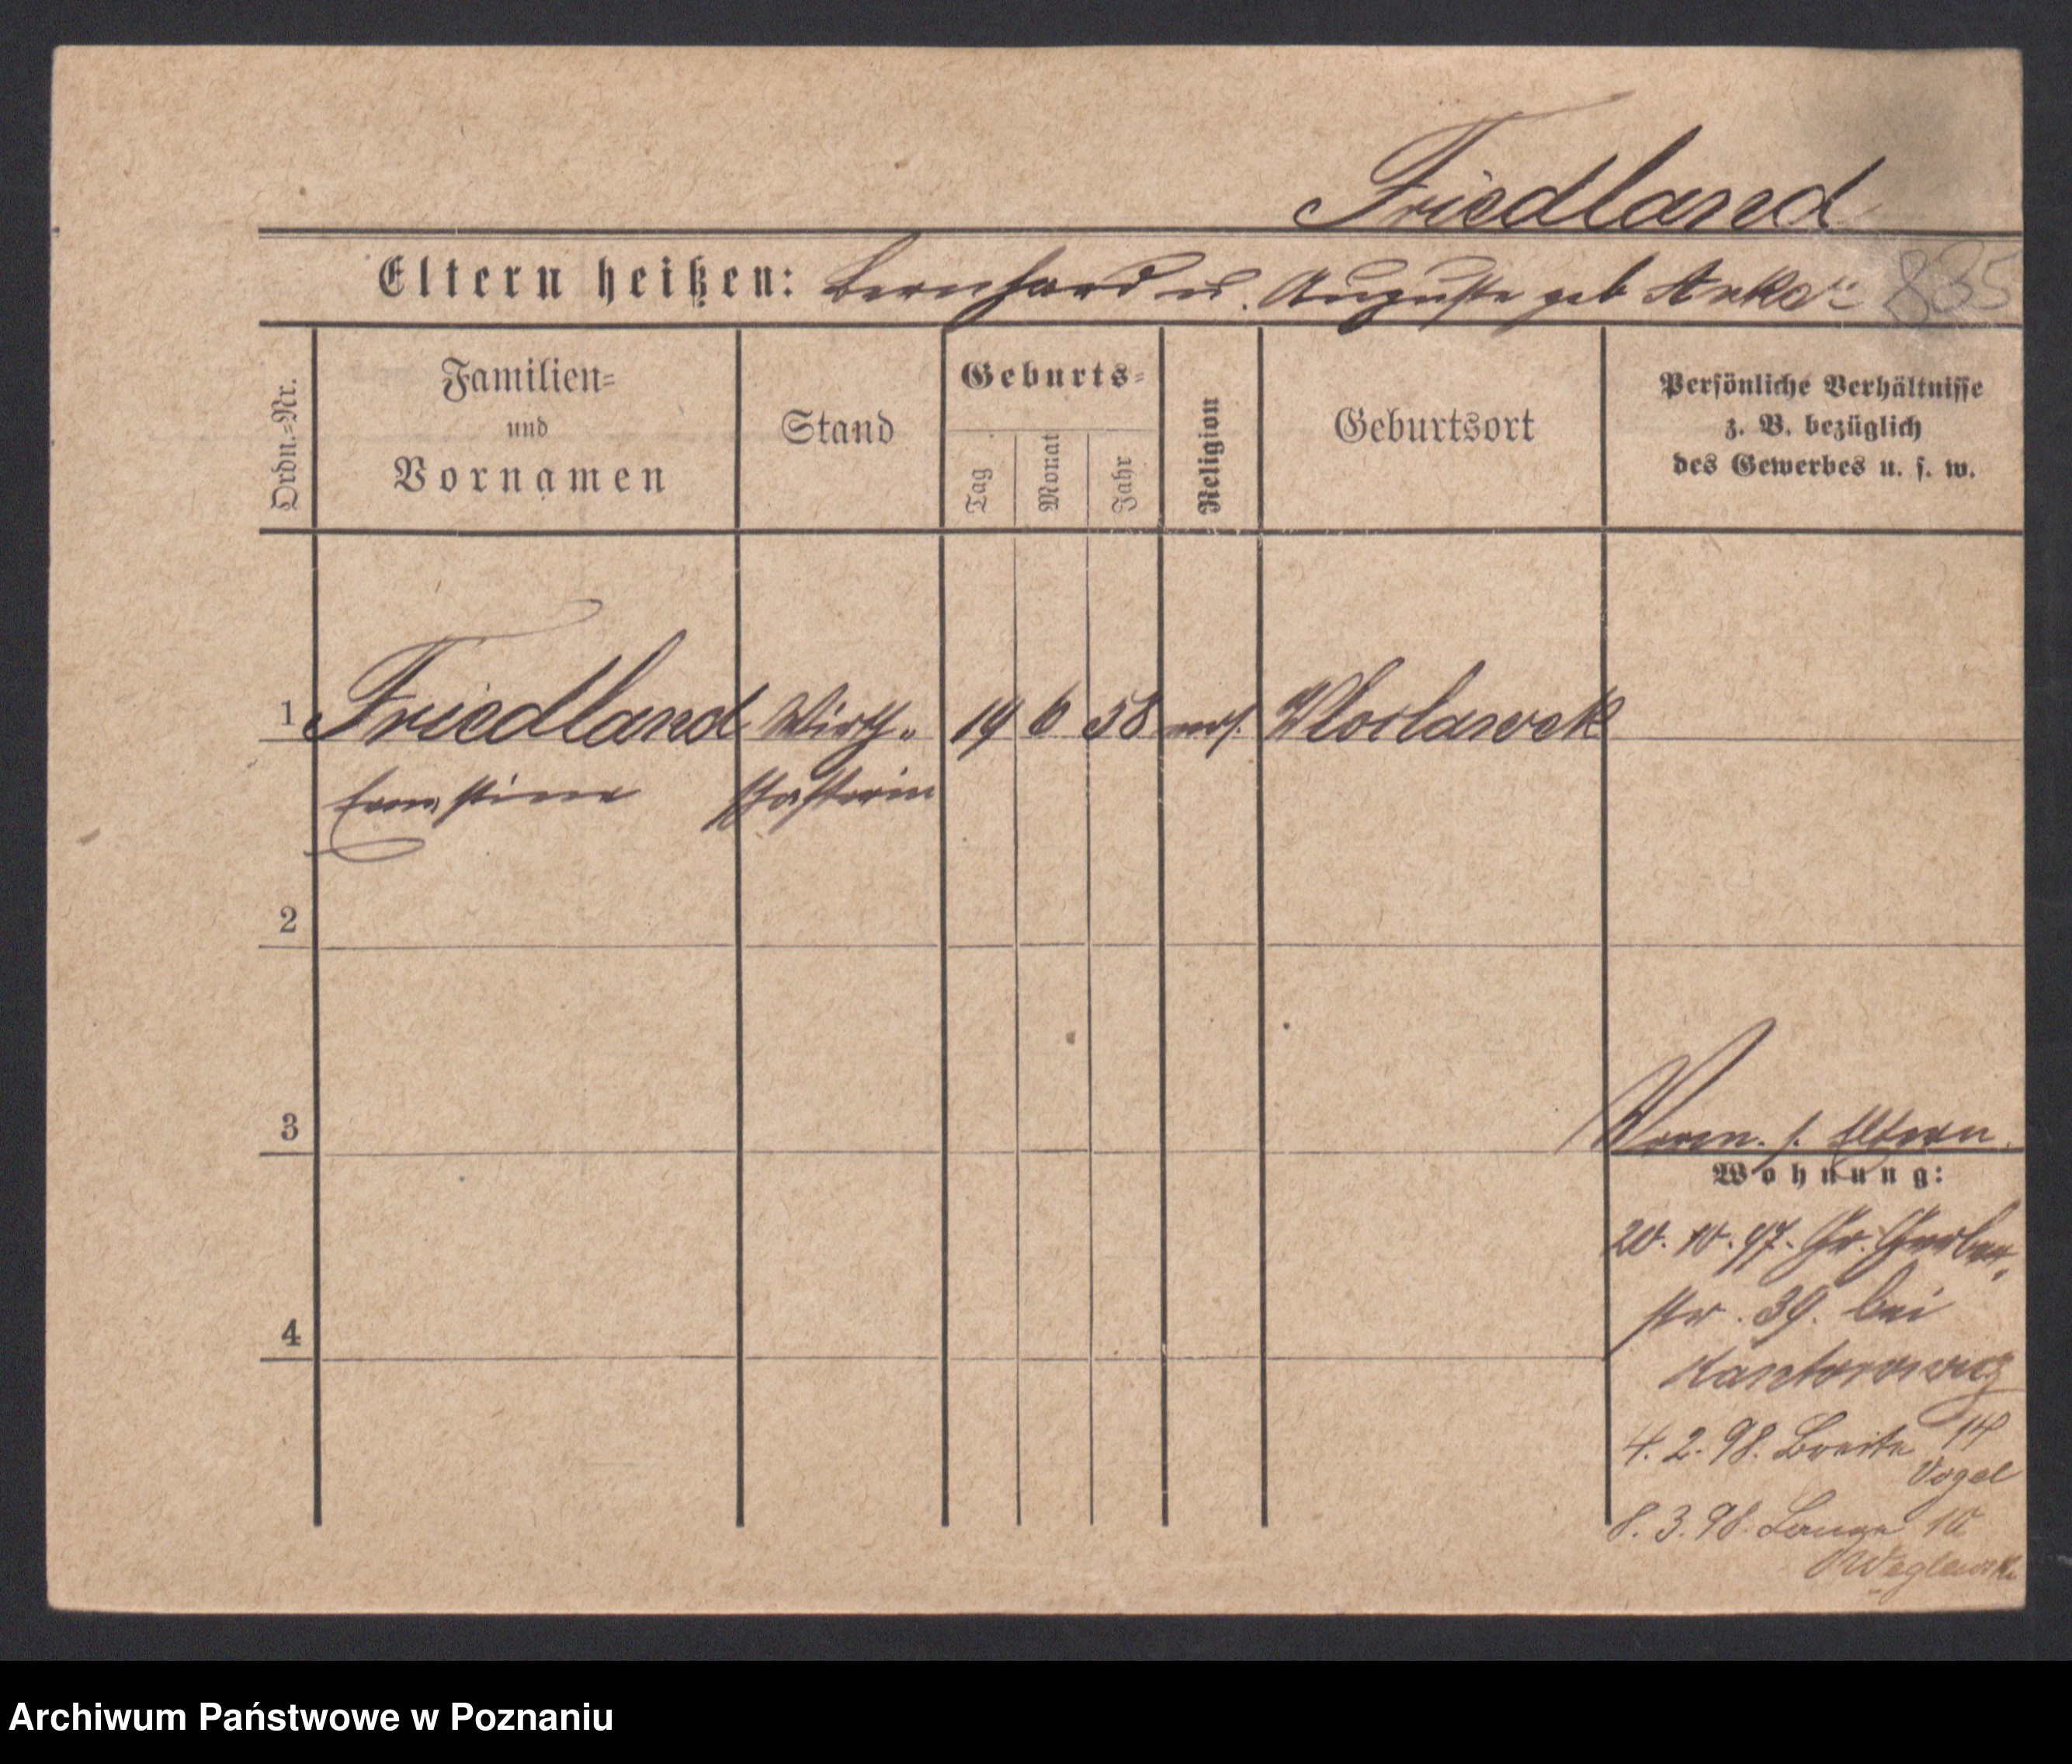 Friedland
Eltern heißen: Bernhard u. Auguste geb
835
Ordn.=Nr.
Familien=
und
Vornamen
Stand
Geburts=
Tag
Monat
Jahr
Religion
Geburtsort
Persönliche Verhältnisse
z. B. bezüglich
des Gewerbes u. s. w.
1 Friedland Wirth= 19 6 58 mos. Wloclawek
Ernestine schafterin
2
3
4
s. Eltern.
Wohnung:
20. 10. 97. Gr. Gerber=
str. 39. bei
Kantorowicz
4. 2. 98. Breite 14
Vogel
8. 3. 98. Lange 10
Archiwum Państwowe w Poznaniu